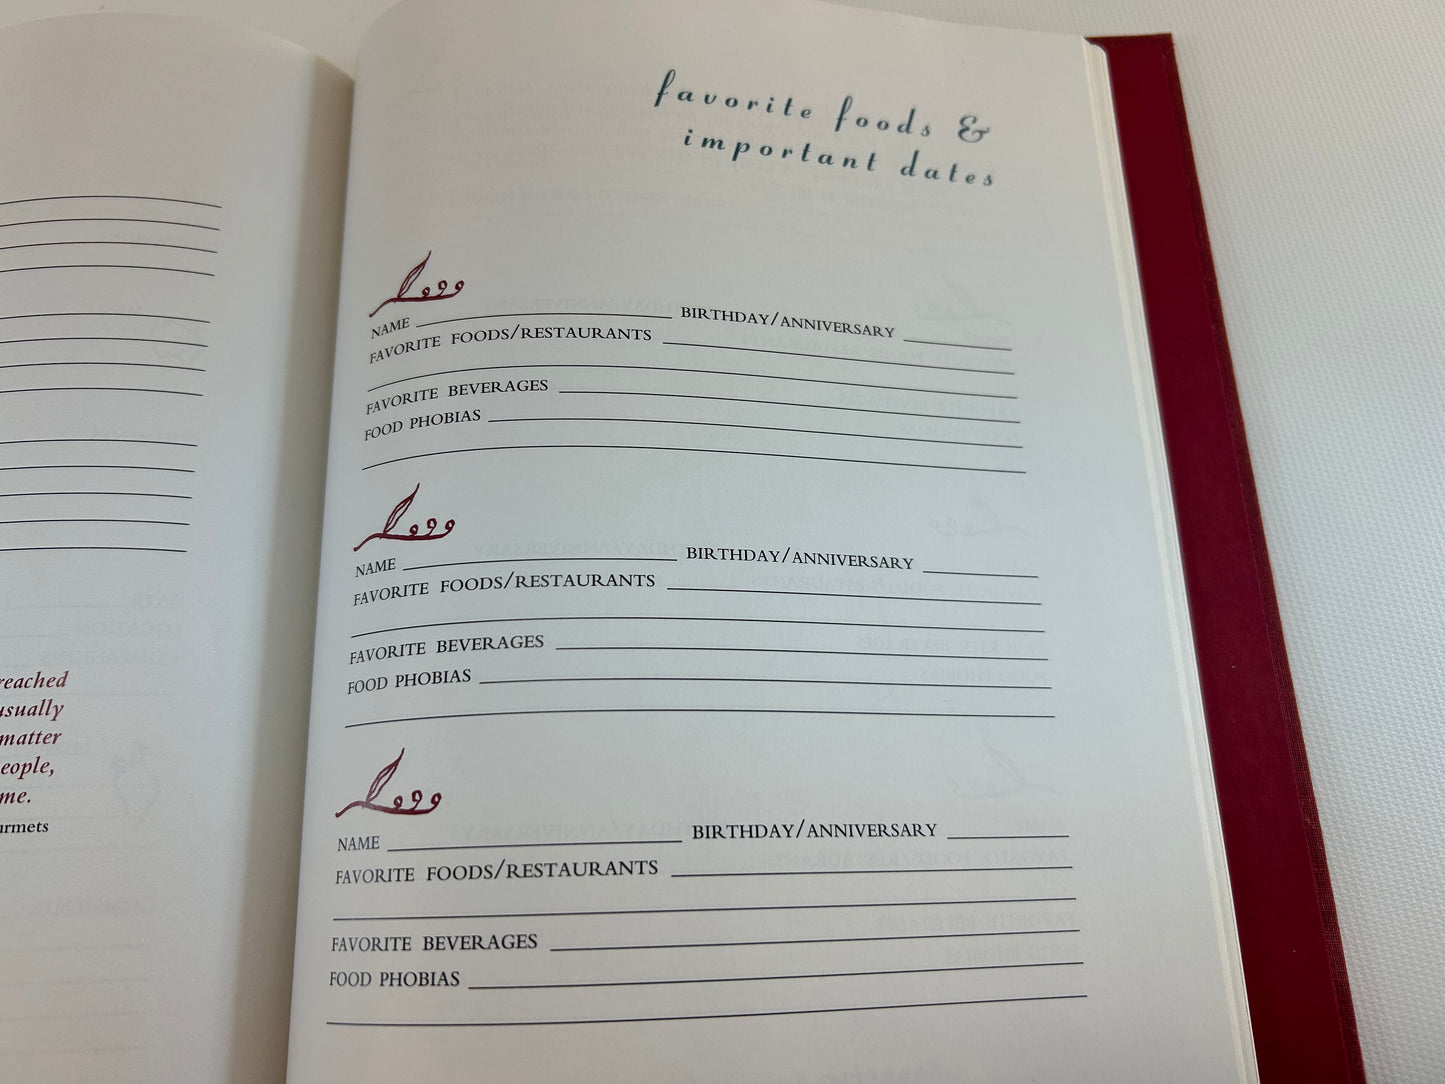 reached
usually
matter
eople,
me.
urmets
favorite foods &
important dates
NAME BIRTHDAY/ANNIVERSARY
FAVORITE FOODS/RESTAURANTS
FAVORITE BEVERAGES
FOOD PHOBIAS
NAME BIRTHDAY/ANNIVERSARY
FAVORITE FOODS/RESTAURANTS
FAVORITE BEVERAGES
FOOD PHOBIAS
NAME BIRTHDAY/ANNIVERSARY
FAVORITE FOODS/RESTAURANTS
FAVORITE BEVERAGES
FOOD PHOBIAS